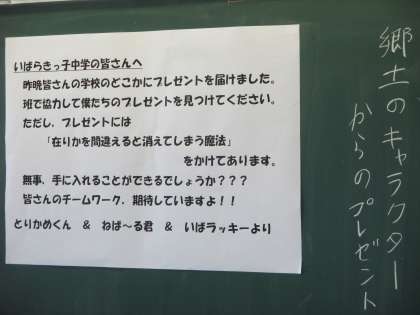 郷土のキャラクター
からのプレゼント
いばらきっ子中学の皆さんへ
昨晩皆さんの学校のどこかにプレゼントを届けました。
班で協力して僕たちのプレゼントを見つけてください。
ただし、プレゼントには
「在りかを間違えると消えてしまう魔法」
をかけてあります。
無事、手に入れることができるでしょうか???
皆さんのチームワーク、期待していますよ!!
とりかめくん & ねば~る君 & いばラッキーより